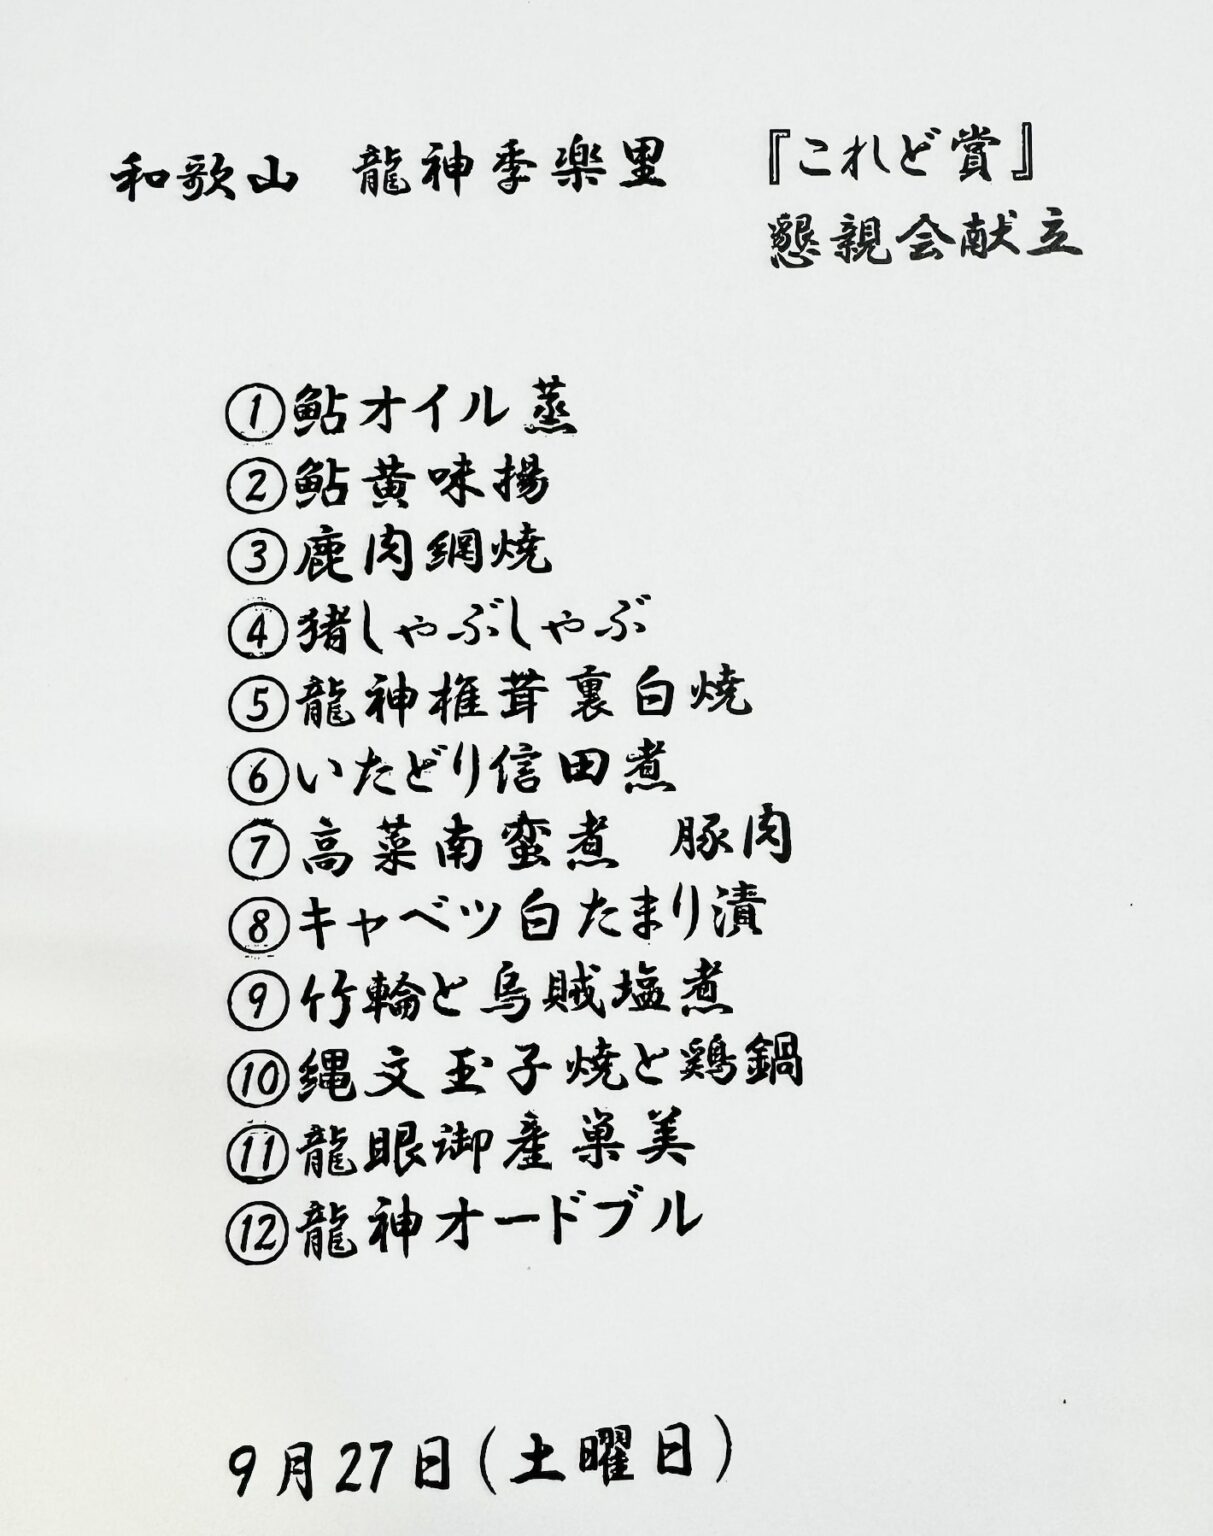 和歌山 龍神季楽里 『これど賞』
懇親会献立
①鮎オイル蒸
②鮎黄味揚
③鹿肉網焼
④猪しゃぶしゃぶ
⑤龍神椎茸裏白焼
⑥いたどり信田煮
⑦高菜南蛮煮 豚肉
⑧キャベツ白たまり漬
⑨竹輪と烏賊塩煮
⑩縄文玉子焼と鶏鍋
⑪龍眼御産巣美
⑫龍神オードブル
9月27日(土曜日)